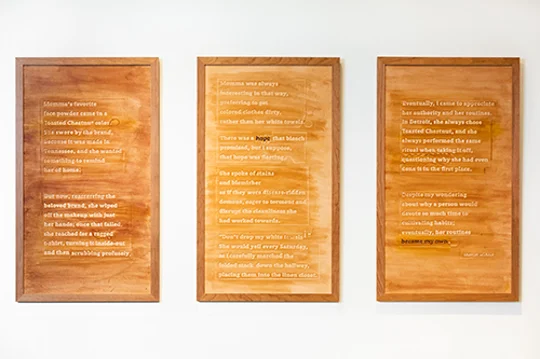 Momma's favorite
face powder came in a
Toasted Chestnut color
She swore by the brand,
because it was made in
Tennessee, and she wanted
something to remind
her of home.
But now, resurrecting the
beloved brand, she wiped
off the makeup with just
her hands; once that failed
she reached for a ragged
t-shirt, turning it inside-out
and then scrubbing profusely.
Momma was always
interesting in that way,
preferring to get
colored clothes dirty,
rather than her white towels.
There was a hope that bleach
promised, but I suppose,
that hope was fleeting.
She spoke of stains
and blemishes
as if they were disease-ridden
demons, eager to torment and
disrupt the cleanliness she
had worked towards.
"Don't drop my white towels
She would yell every Saturday,
as I carefully marched the
folded stack down the hallway,
placing them into the linen closet.
Eventually, I came to appreciate
her authority and her routines
in Detroit, she always chose
Toasted Chestnut, and she
always performed the same
ritual when taking it off,
questioning why she had even
done it in the first place.
Despite my wondering
about why a person would
devote so much time to
cultivating habits;
eventually, her routines
became my own.